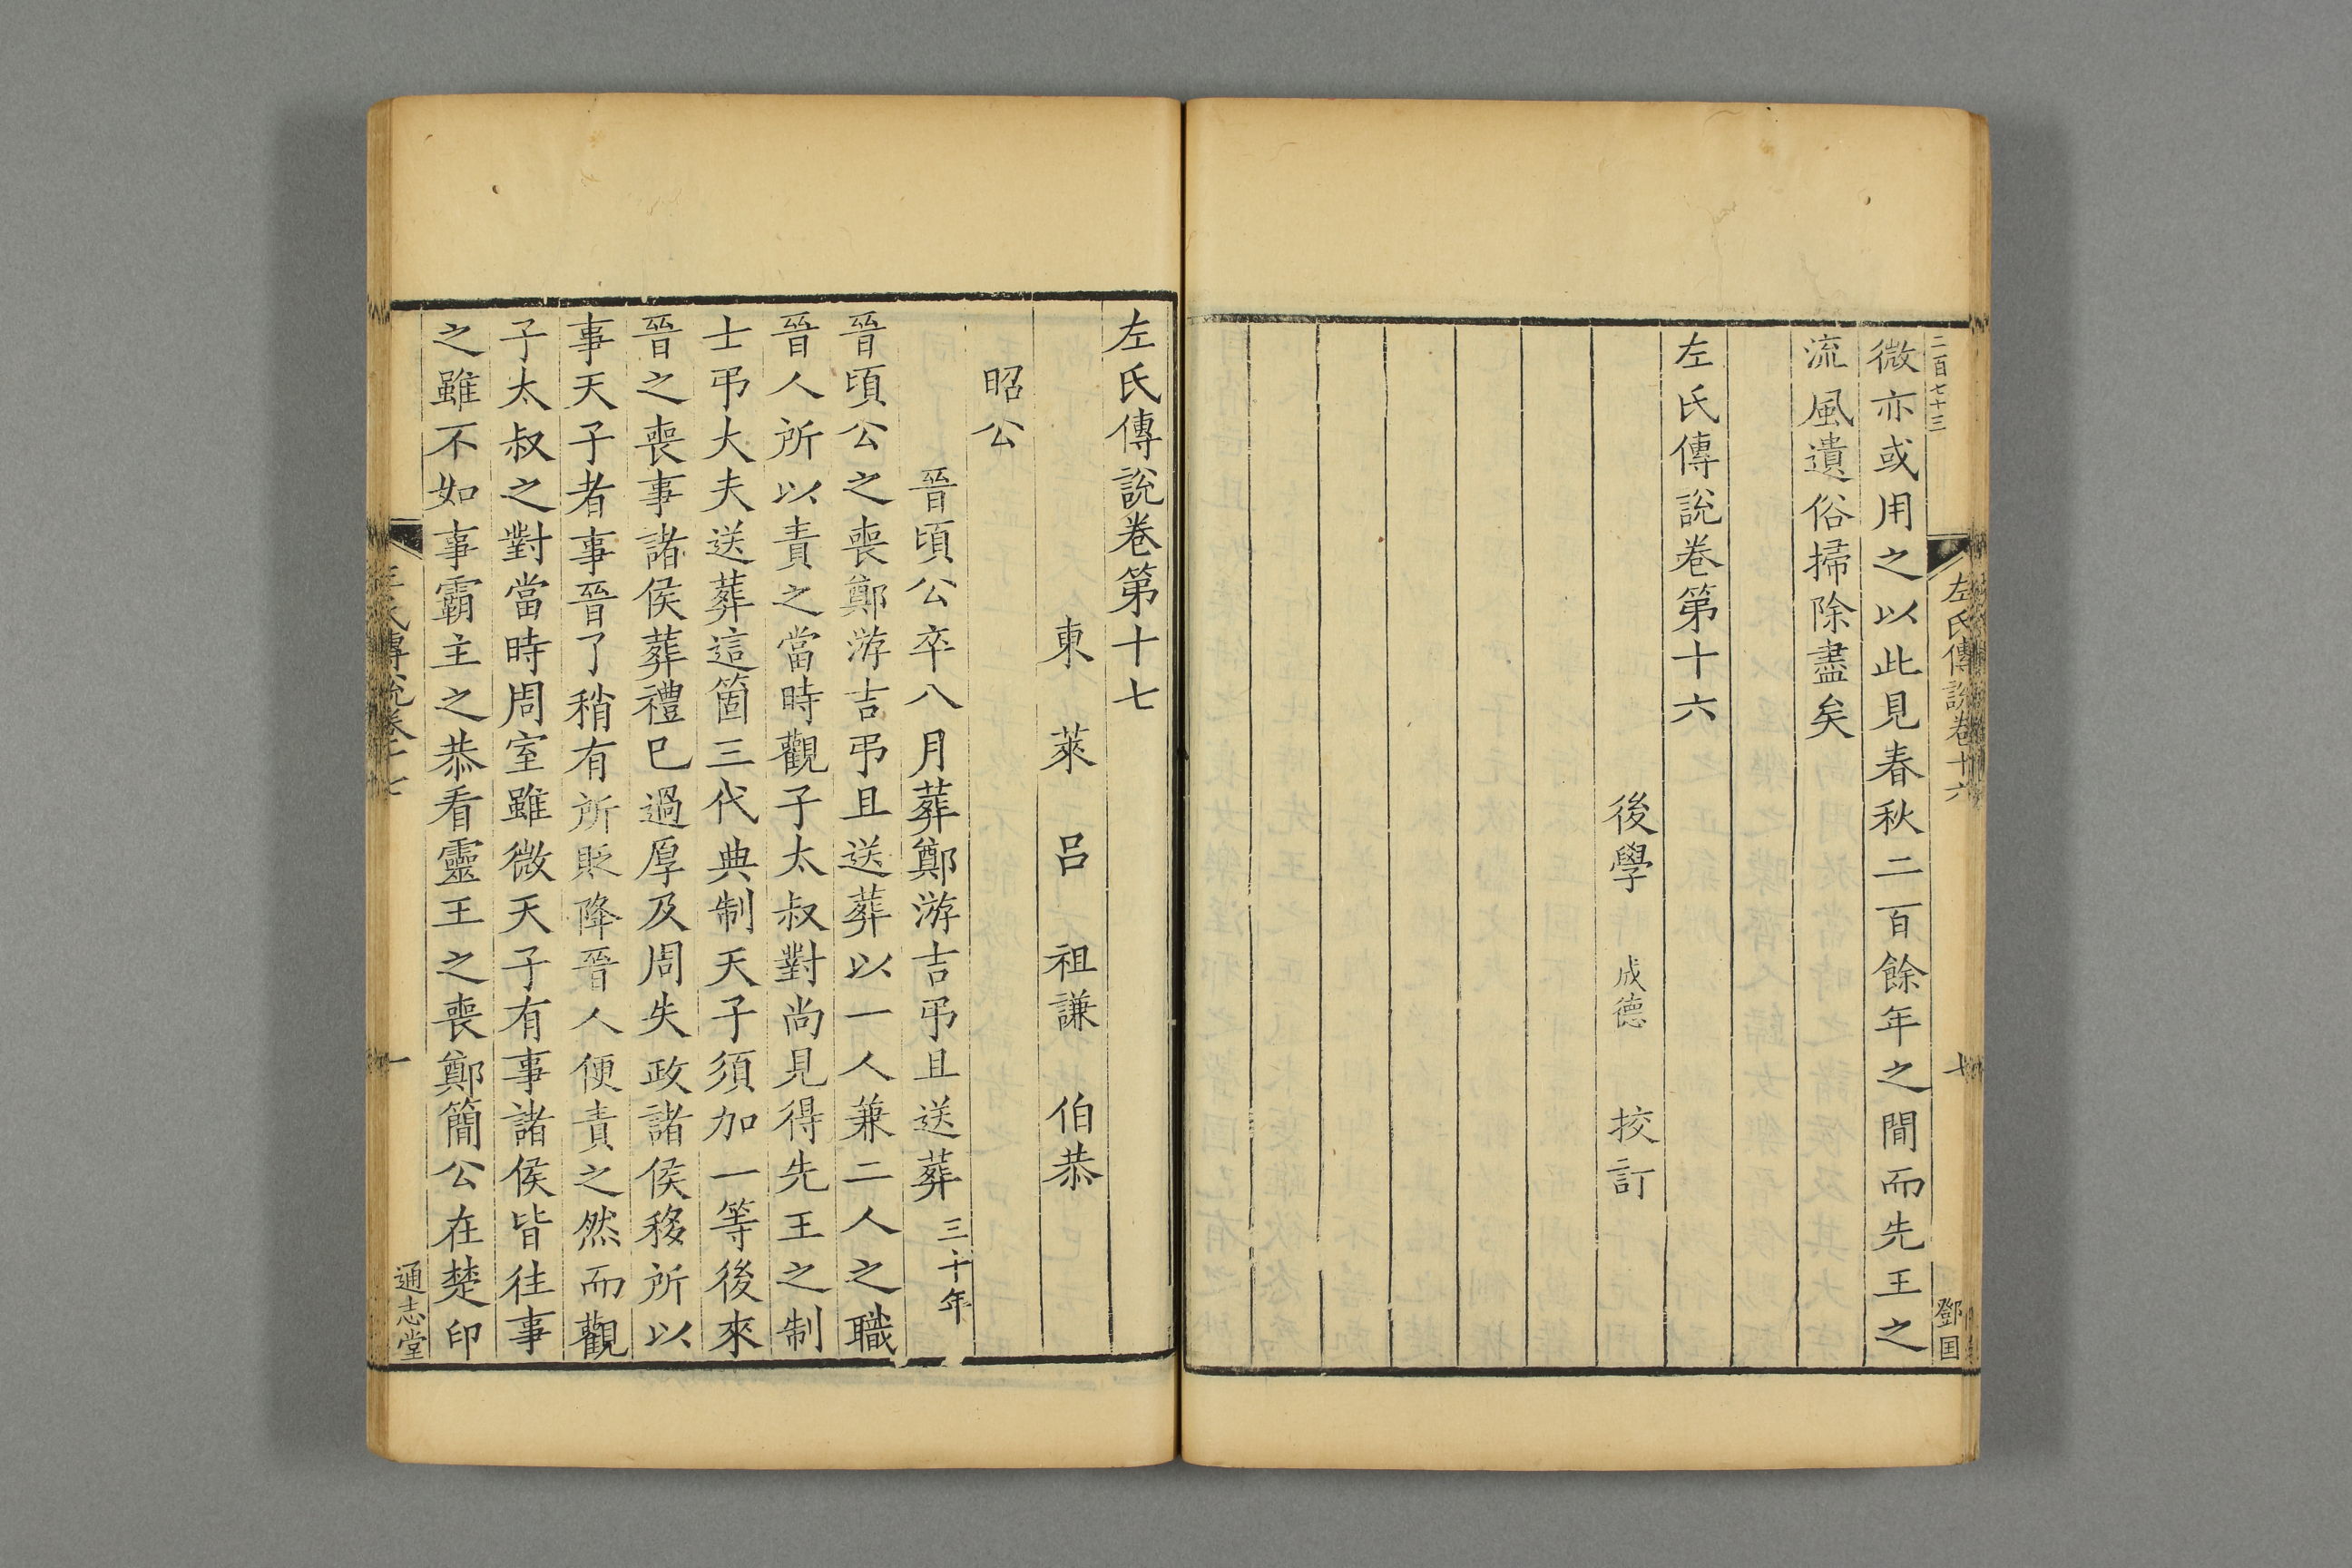 二百七十三
左氏傳說卷十六
七
鄧国
微亦或用之以此見春秋二百餘年之間而先王之
流風遺俗掃除盡矣
左氏傳說卷第十六
後學 成德 挍訂
左氏傳說卷第十七
東萊呂祖謙伯恭
昭公
晉頃公卒八月葬鄭游吉弔且送葬 三十年
晉頃公之喪鄭游吉弔且送葬以一人兼二人之職
晉人所以責之當時觀子太叔對尚見得先王之制
士弔大夫送葬這箇三代典制天子須加一等後來
晉之喪事諸侯葬禮已過厚及周失政諸侯移所以
事天子者事晉了稍有所貶降晉人便責之然而觀
子太叔之對當時周室雖微天子有事諸侯皆往事
之雖不如事霸主之恭看靈王之喪鄭簡公在楚印
左氏傳說卷十七
一
通志堂